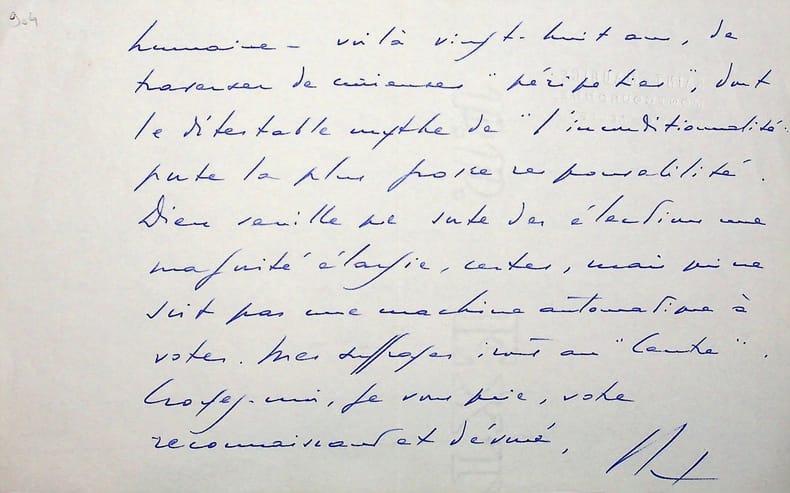 304
humaine – voilà vingt-huit ans, de
traverser de curieuses "péripéties", dont
le détestable mythe de "l'inconditionnalité"
porte la plus grosse responsabilité.
Dieu veuille que sorte des élections une
majorité élargie, certes, mais qui ne
soit pas une machine automatique à
voter. Mes suffrages iront au "Centre".
Croyez-moi, je vous prie, votre
reconnaissant et dévoué,